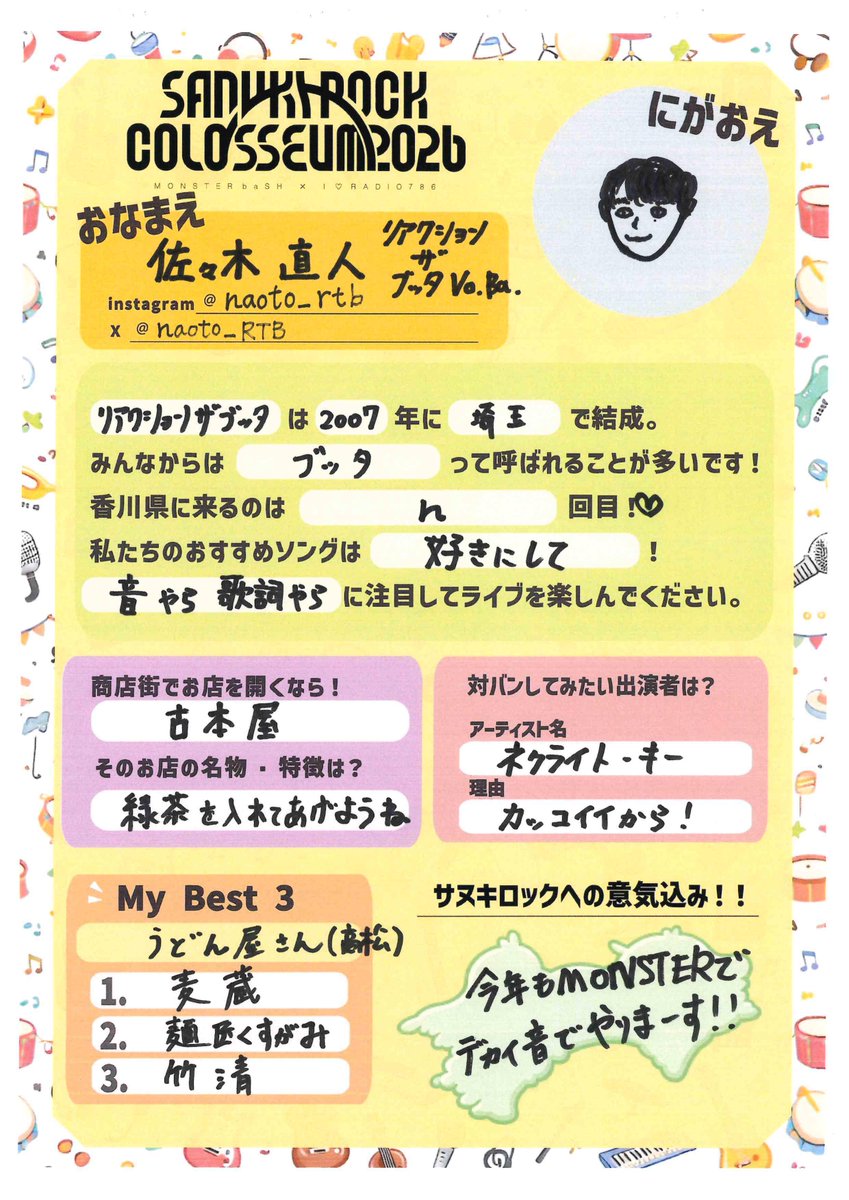 SANUKI ROCK
COLOSSEUM 2026
MONSTER baSH × I♡RADIO786
にがおえ
おなまえ
佐々木 直人
リアクション
ザ
ブッタ Vo.Ba.
instagram @ naoto_rtb
x @ naoto_RTB
リアクションザブッタ は 2007 年に 埼玉 で結成。
みんなからは ブッタ って呼ばれることが多いです!
香川県に来るのは n 回目!♡
私たちのおすすめソングは 好きにして !
音やら 歌詞やら に注目してライブを楽しんでください。
商店街でお店を開くなら!
古本屋
そのお店の名物・特徴は?
緑茶を入れてあげようね
対バンしてみたい出演者は?
アーティスト名
ネクライトーキー
理由
カッコイイから!
My Best 3
うどん屋さん(高松)
1. 麦蔵
2. 麺匠くすがみ
3. 竹清
サヌキロックへの意気込み!!
今年もMONSTERで
デカイ音でやりまーす!!